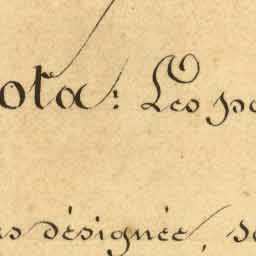 ota: Les pe
es désignée, se